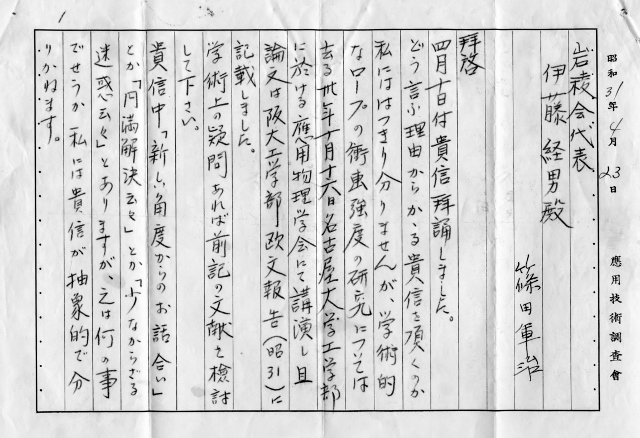 1
昭和31年4月23日
應用技術調査會
岩稜会代表
伊藤経男殿
篠田軍治
拝啓
四月十日付貴信拝誦しました。
どう言ふ理由からかゝる貴信を頂くのか
私にははつきり分りませんが、学術的
なロープの衝撃強度の研究については
去る卅年十月十六日名古屋大学工学部
に於ける應用物理学会にて講演し且
論文は阪大工学部欧文報告(昭31)に
記載しました。
学術上の疑問あれば前記の文献を検討
して下さい。
貴信中「新しい角度からのお話合い」
とか「円満解決云々」とか「少なからざる
迷惑云々」とありますが、之は何の事
でせうか 私には貴信が抽象的で分
りかねます。